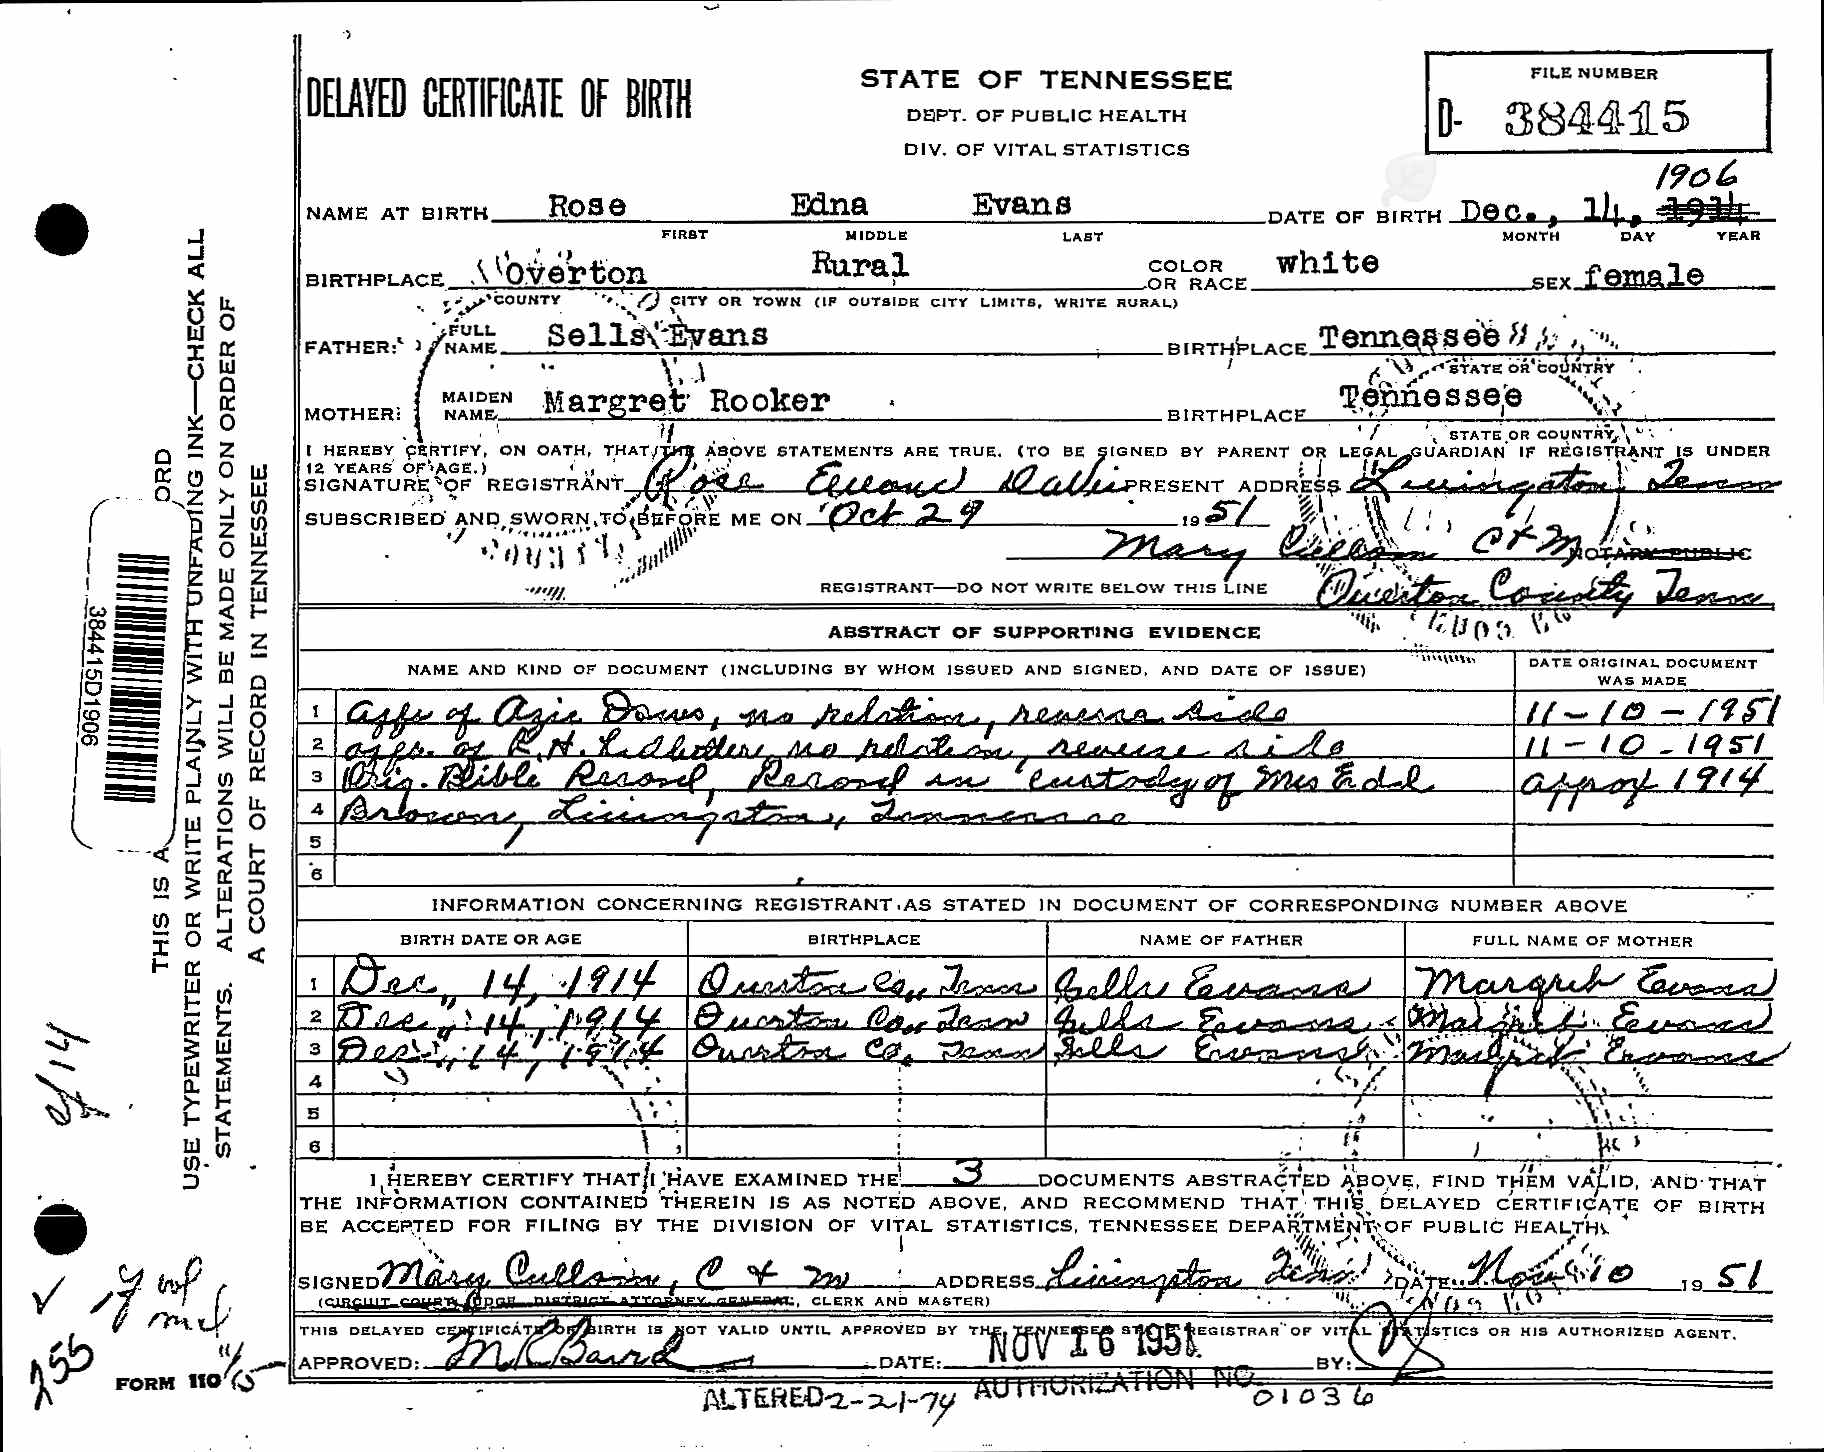 DELAYED CERTIFICATE OF BIRTH
STATE OF TENNESSEE
DEPT. OF PUBLIC HEALTH
DIV. OF VITAL STATISTICS
FILE NUMBER
D- 384415
1906
NAME AT BIRTH Rose Edna Evans DATE OF BIRTH Dec., 14, 1914
FIRST MIDDLE LAST MONTH DAY YEAR
BIRTHPLACE Overton Rural COLOR OR RACE white SEX female
COUNTY CITY OR TOWN (IF OUTSIDE CITY LIMITS, WRITE RURAL)
FATHER: FULL NAME Sells Evans BIRTHPLACE Tennessee
STATE OR COUNTRY
MOTHER: MAIDEN NAME Margret Rooker BIRTHPLACE Tennessee
STATE OR COUNTRY
I HEREBY CERTIFY, ON OATH, THAT THE ABOVE STATEMENTS ARE TRUE. (TO BE SIGNED BY PARENT OR LEGAL GUARDIAN IF REGISTRANT IS UNDER
12 YEARS OF AGE.)
SIGNATURE OF REGISTRANT Rose PRESENT ADDRESS Livingston, Tenn
SUBSCRIBED AND SWORN TO BEFORE ME ON Oct 29 1951
Mary Cullom C & M NOTARY PUBLIC
REGISTRANT—DO NOT WRITE BELOW THIS LINE Overton County Tenn
ABSTRACT OF SUPPORTING EVIDENCE
NAME AND KIND OF DOCUMENT (INCLUDING BY WHOM ISSUED AND SIGNED, AND DATE OF ISSUE) DATE ORIGINAL DOCUMENT WAS MADE
1 of Azie no relation, reverse side 11-10-1951
2 of R.H. Ledbetter, no relation, reverse side 11-10-1951
3 Orig. Bible Record, Record in custody of Mrs Edd approx 1914
4 Brown, Livingston, Tennessee
5
6
INFORMATION CONCERNING REGISTRANT AS STATED IN DOCUMENT OF CORRESPONDING NUMBER ABOVE
BIRTH DATE OR AGE BIRTHPLACE NAME OF FATHER FULL NAME OF MOTHER
1 Dec., 14, 1914 Overton Co., Tenn Sells Evans Margret Evans
2 Dec., 14, 1914 Overton Co., Tenn Sells Evans Margret Evans
3 Dec., 14, 1914 Overton Co. Tenn Sells Evans Margret Evans
4
5
6
I HEREBY CERTIFY THAT I HAVE EXAMINED THE 3 DOCUMENTS ABSTRACTED ABOVE, FIND THEM VALID, AND THAT
THE INFORMATION CONTAINED THEREIN IS AS NOTED ABOVE, AND RECOMMEND THAT THIS DELAYED CERTIFICATE OF BIRTH
BE ACCEPTED FOR FILING BY THE DIVISION OF VITAL STATISTICS, TENNESSEE DEPARTMENT OF PUBLIC HEALTH.
SIGNED Mary Cullom, C & M ADDRESS Livingston Tenn DATE Nov 10 1951
(CIRCUIT COURT JUDGE, DISTRICT ATTORNEY GENERAL, CLERK AND MASTER)
THIS DELAYED CERTIFICATE OF BIRTH IS NOT VALID UNTIL APPROVED BY THE TENNESSEE STATE REGISTRAR OF VITAL STATISTICS OR HIS AUTHORIZED AGENT.
APPROVED: DATE: NOV 16 1951 BY:
FORM 110
ALTERED 2-21-74 AUTHORIZATION NO. 01036
THIS IS A ORD
USE TYPEWRITER OR WRITE PLAINLY WITH UNFADING INK—CHECK ALL
STATEMENTS. ALTERATIONS WILL BE MADE ONLY ON ORDER OF
A COURT OF RECORD IN TENNESSEE
384415D1906
255
11/15